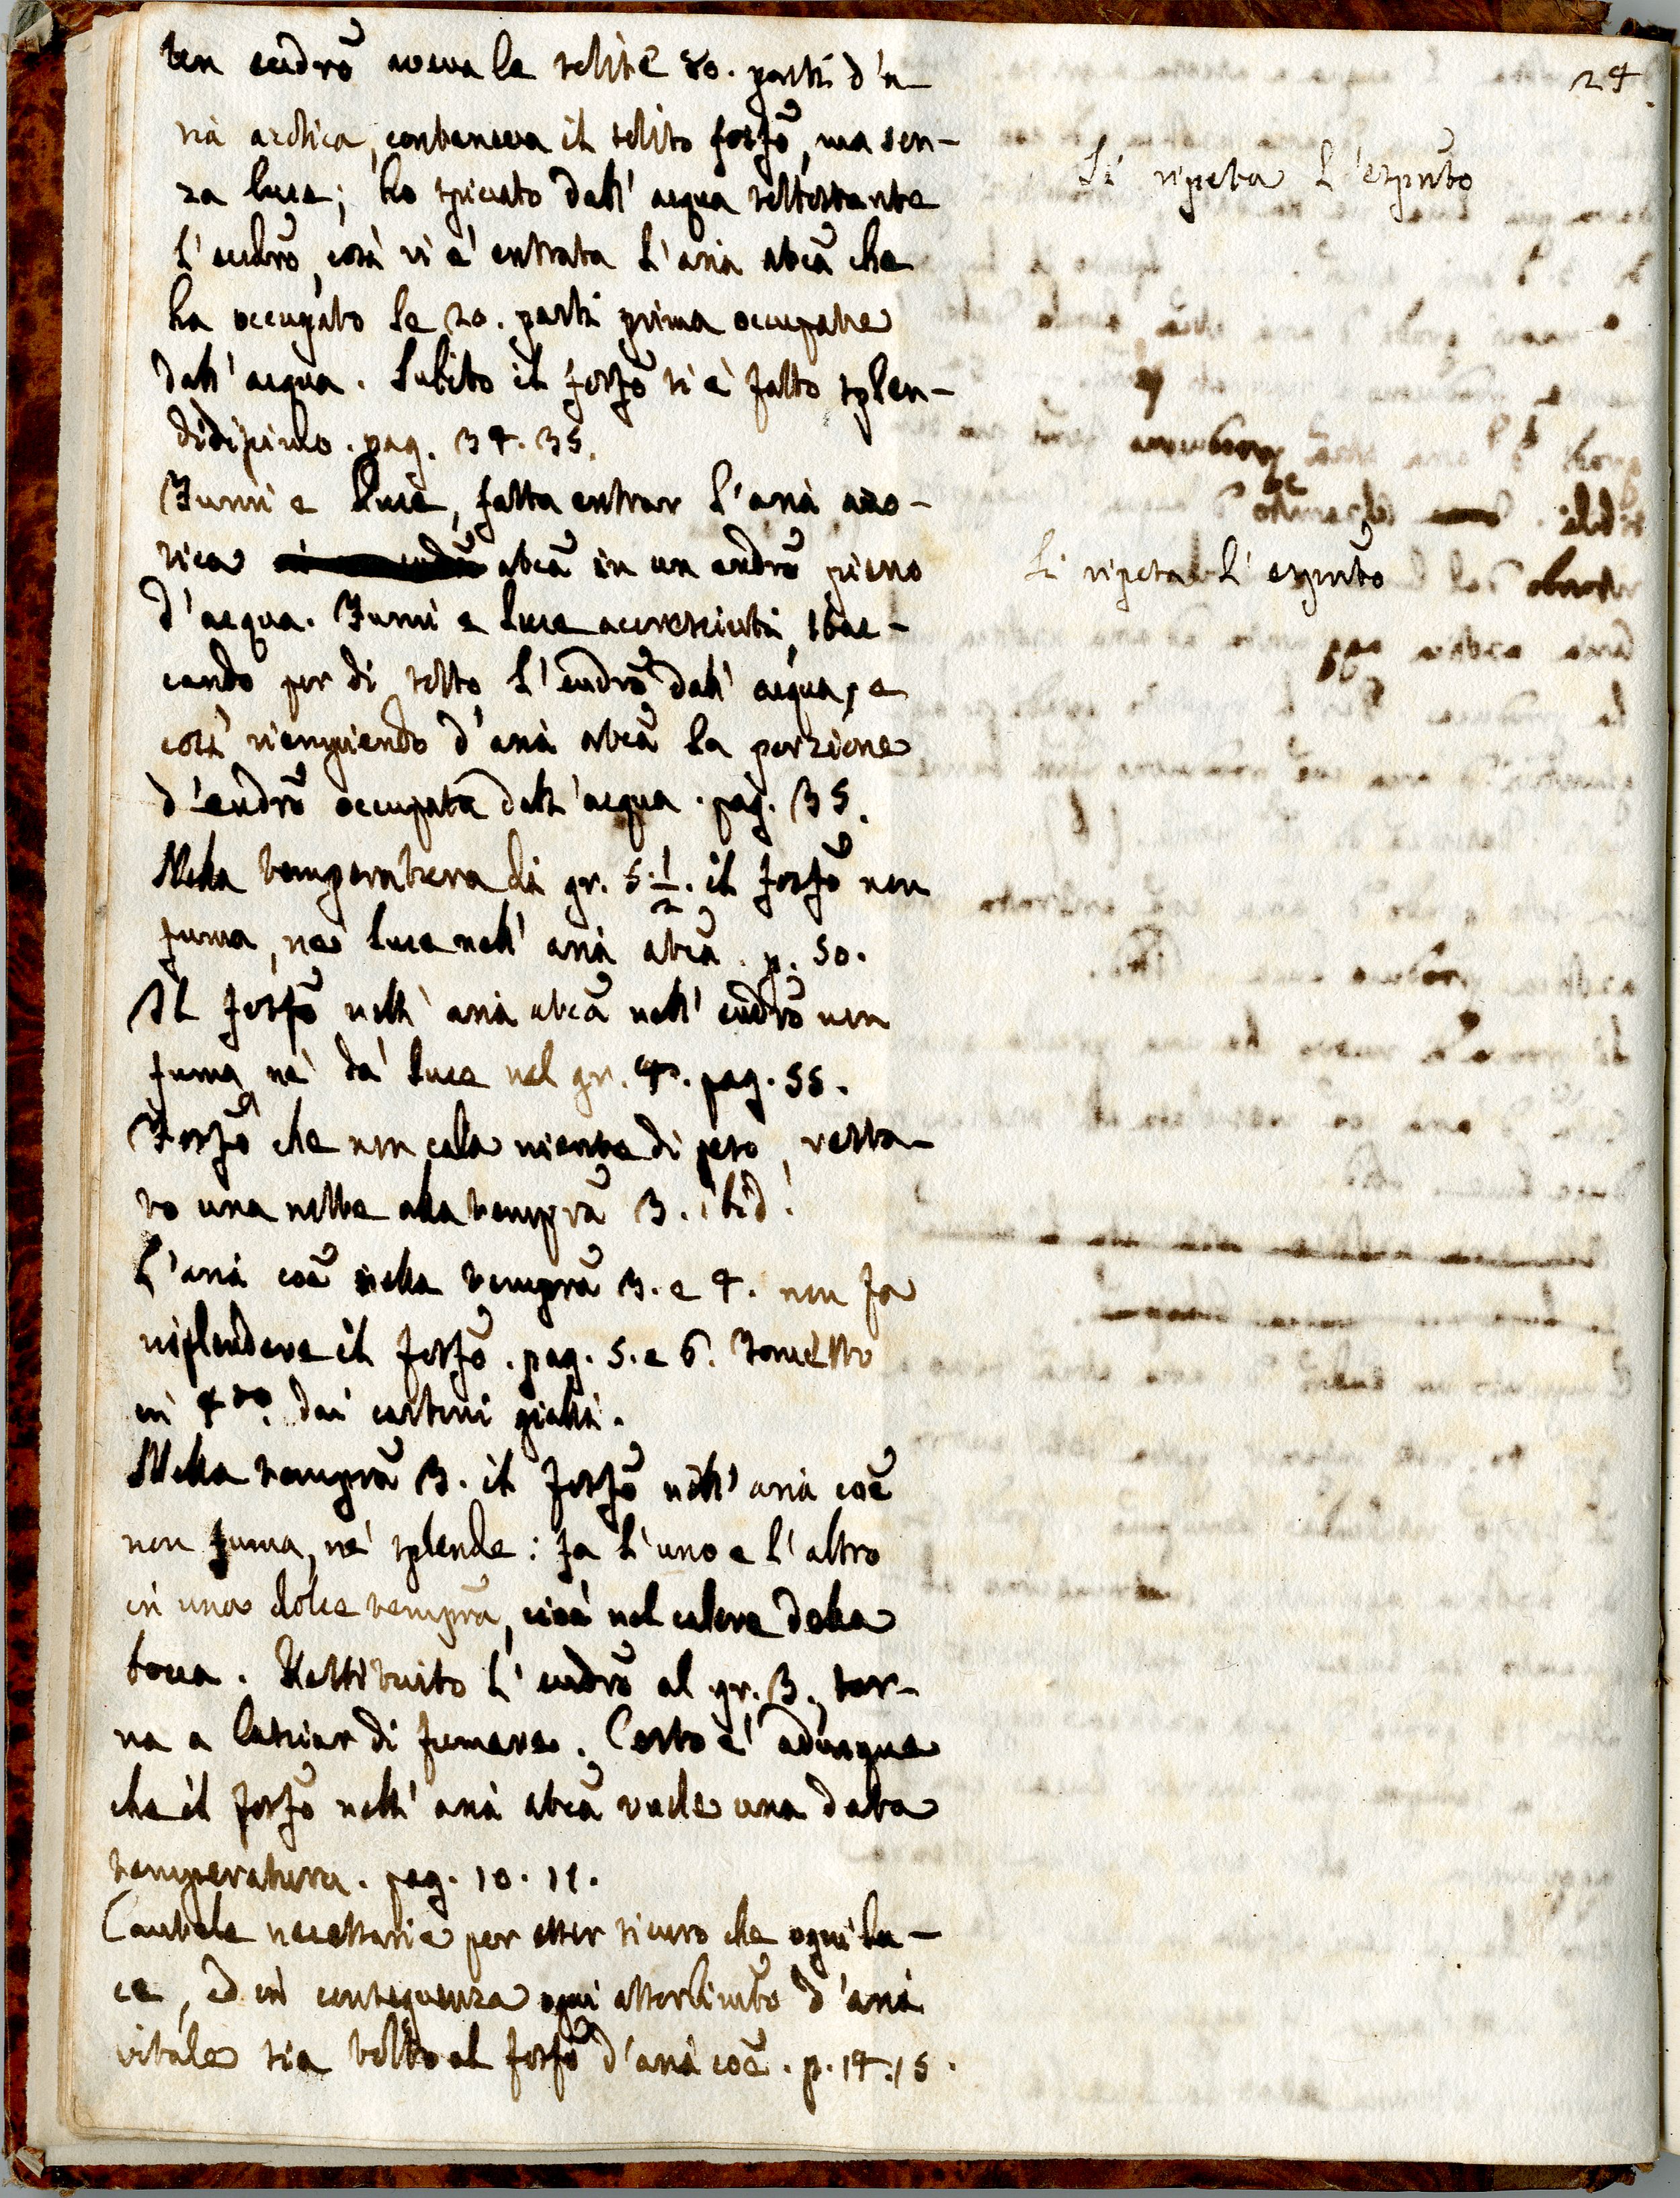 24.
Un eudrõ aveva le solite 80. parti d'a-
ria azotica, conteneva il solito fosfõ, ma sen-
za luce; ho spiccato dall' acqua sottostante
l'eudrõ, così vi è entrata l'aria atcã che
ha occupato le 20. parti prima occupate
dall' acqua. Subito il fosfõ si è fatto splen-
didissimo. pag. 34. 35.
Fumi e luce, fatta entrar l'aria azo-
tica atcã in un eudrõ pieno
d'acqua. Fumi e luce accresciuti, stac-
cando per di sotto l'eudrõ dall' acqua, e
così riempiendo d'aria atcã la porzione
d'eudrõ occupata dall'acqua. pag. 35.
Nella temperatura di gr. 5.1/2. il fosfõ non
fuma, nè luce nell' aria atcã. p. 50.
Il fosfõ nell' aria atcã nell' eudrõ non
fuma nè dà luce nel gr. 4. pag. 55.
Fosfõ che non cala niente di peso, resta-
to una notte alla temprã 3. ibid.
L'aria coẽ nella temprã 3. e 4. non fa
risplendere il fosfõ. pag. 5. e 6. Tometto
in 4to. dai cartoni gialli.
Nella temprã 3. il fosfõ nell' aria coẽ
non fuma, nè splende: fa l'uno e l'altro
in una dolce temprã, cioè nel calore della
bocca. Restituito l'eudrõ al gr. 3., tor-
na a lasciar di fumare. Certo è adunque
che il fosfõ nell' aria atcã vuole una data
temperatura. pag. 10. 11.
Cautele necessarie per esser sicuro che ogni lu-
ce, ed in conseguenza ogni assorbimto d'aria
vitale sia tolto al fosfõ d'aria coẽ. p. 14. 15.
Si ripeta l'esprito
Si ripeta l'esprito